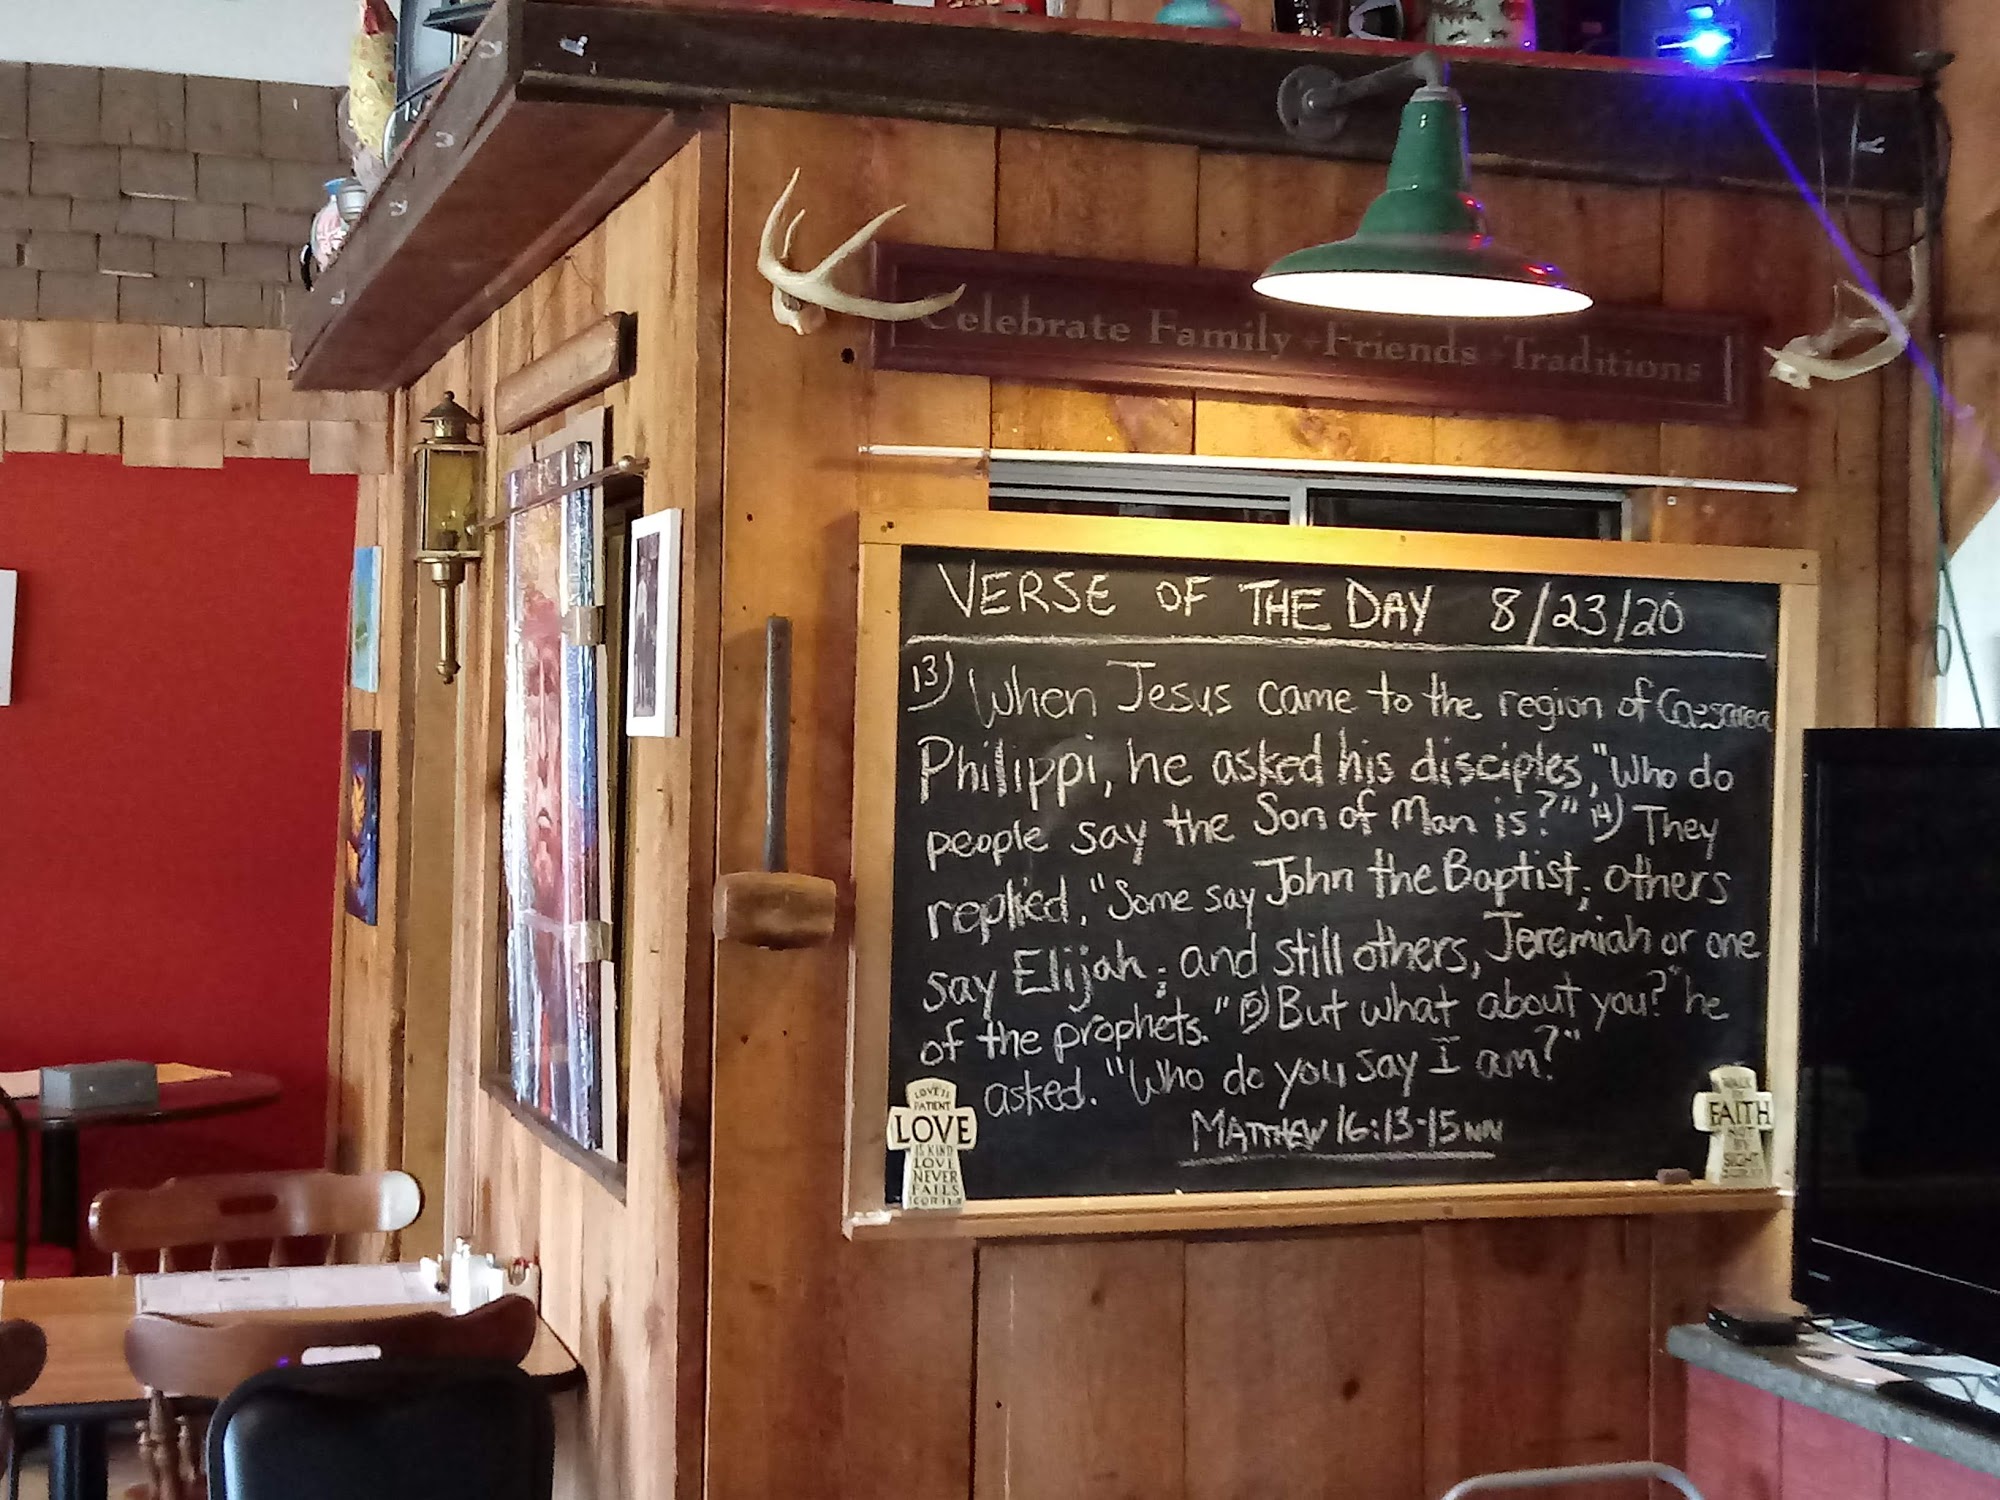 Celebrate Family Friends Traditions
VERSE OF THE DAY 8/23/20
13) When Jesus came to the region of Caesarea
Philippi, he asked his disciples, "Who do
people say the Son of Man is?" 14) They
replied, "Some say John the Baptist; others
say Elijah; and still others, Jeremiah or one
of the prophets." 15) But what about you?" he
asked. "Who do you say I am?"
MATTHEW 16:13-15
LOVE IS
PATIENT
LOVE
IS KIND
LOVE
NEVER
FAILS
WALK
BY
FAITH
NOT
BY
SIGHT